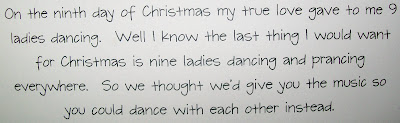 On the ninth day of Christmas my true love gave to me 9
ladies dancing.  Well I know the last thing I would want
for Christmas is nine ladies dancing and prancing
everywhere.  So we thought we'd give you the music so
you could dance with each other instead.